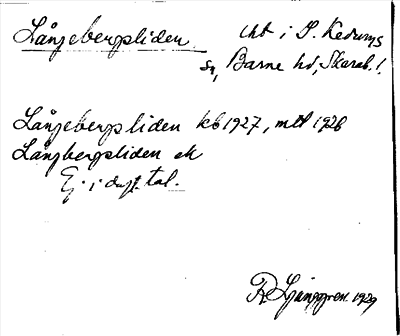 Långebergsliden
utt i S. Kedums
sn, Barne hd, Skarab. l.
Långebergsliden kb 1927, mtl 1926
Långbergsliden ek
Ej i dagl. tal.
R. Ljunggren. 1929